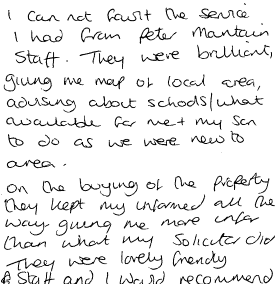 I can not fault the service
I had from Peter Mountain
Staff. They were brilliant,
giving me map of local area,
advising about schools/what
available for me + my son
to do as we were new to
area.
On the buying of the Property
they kept my informed all the
way giving me more infor
than what my Soliciter did
They were lovely friendly
Staff and I would recommend